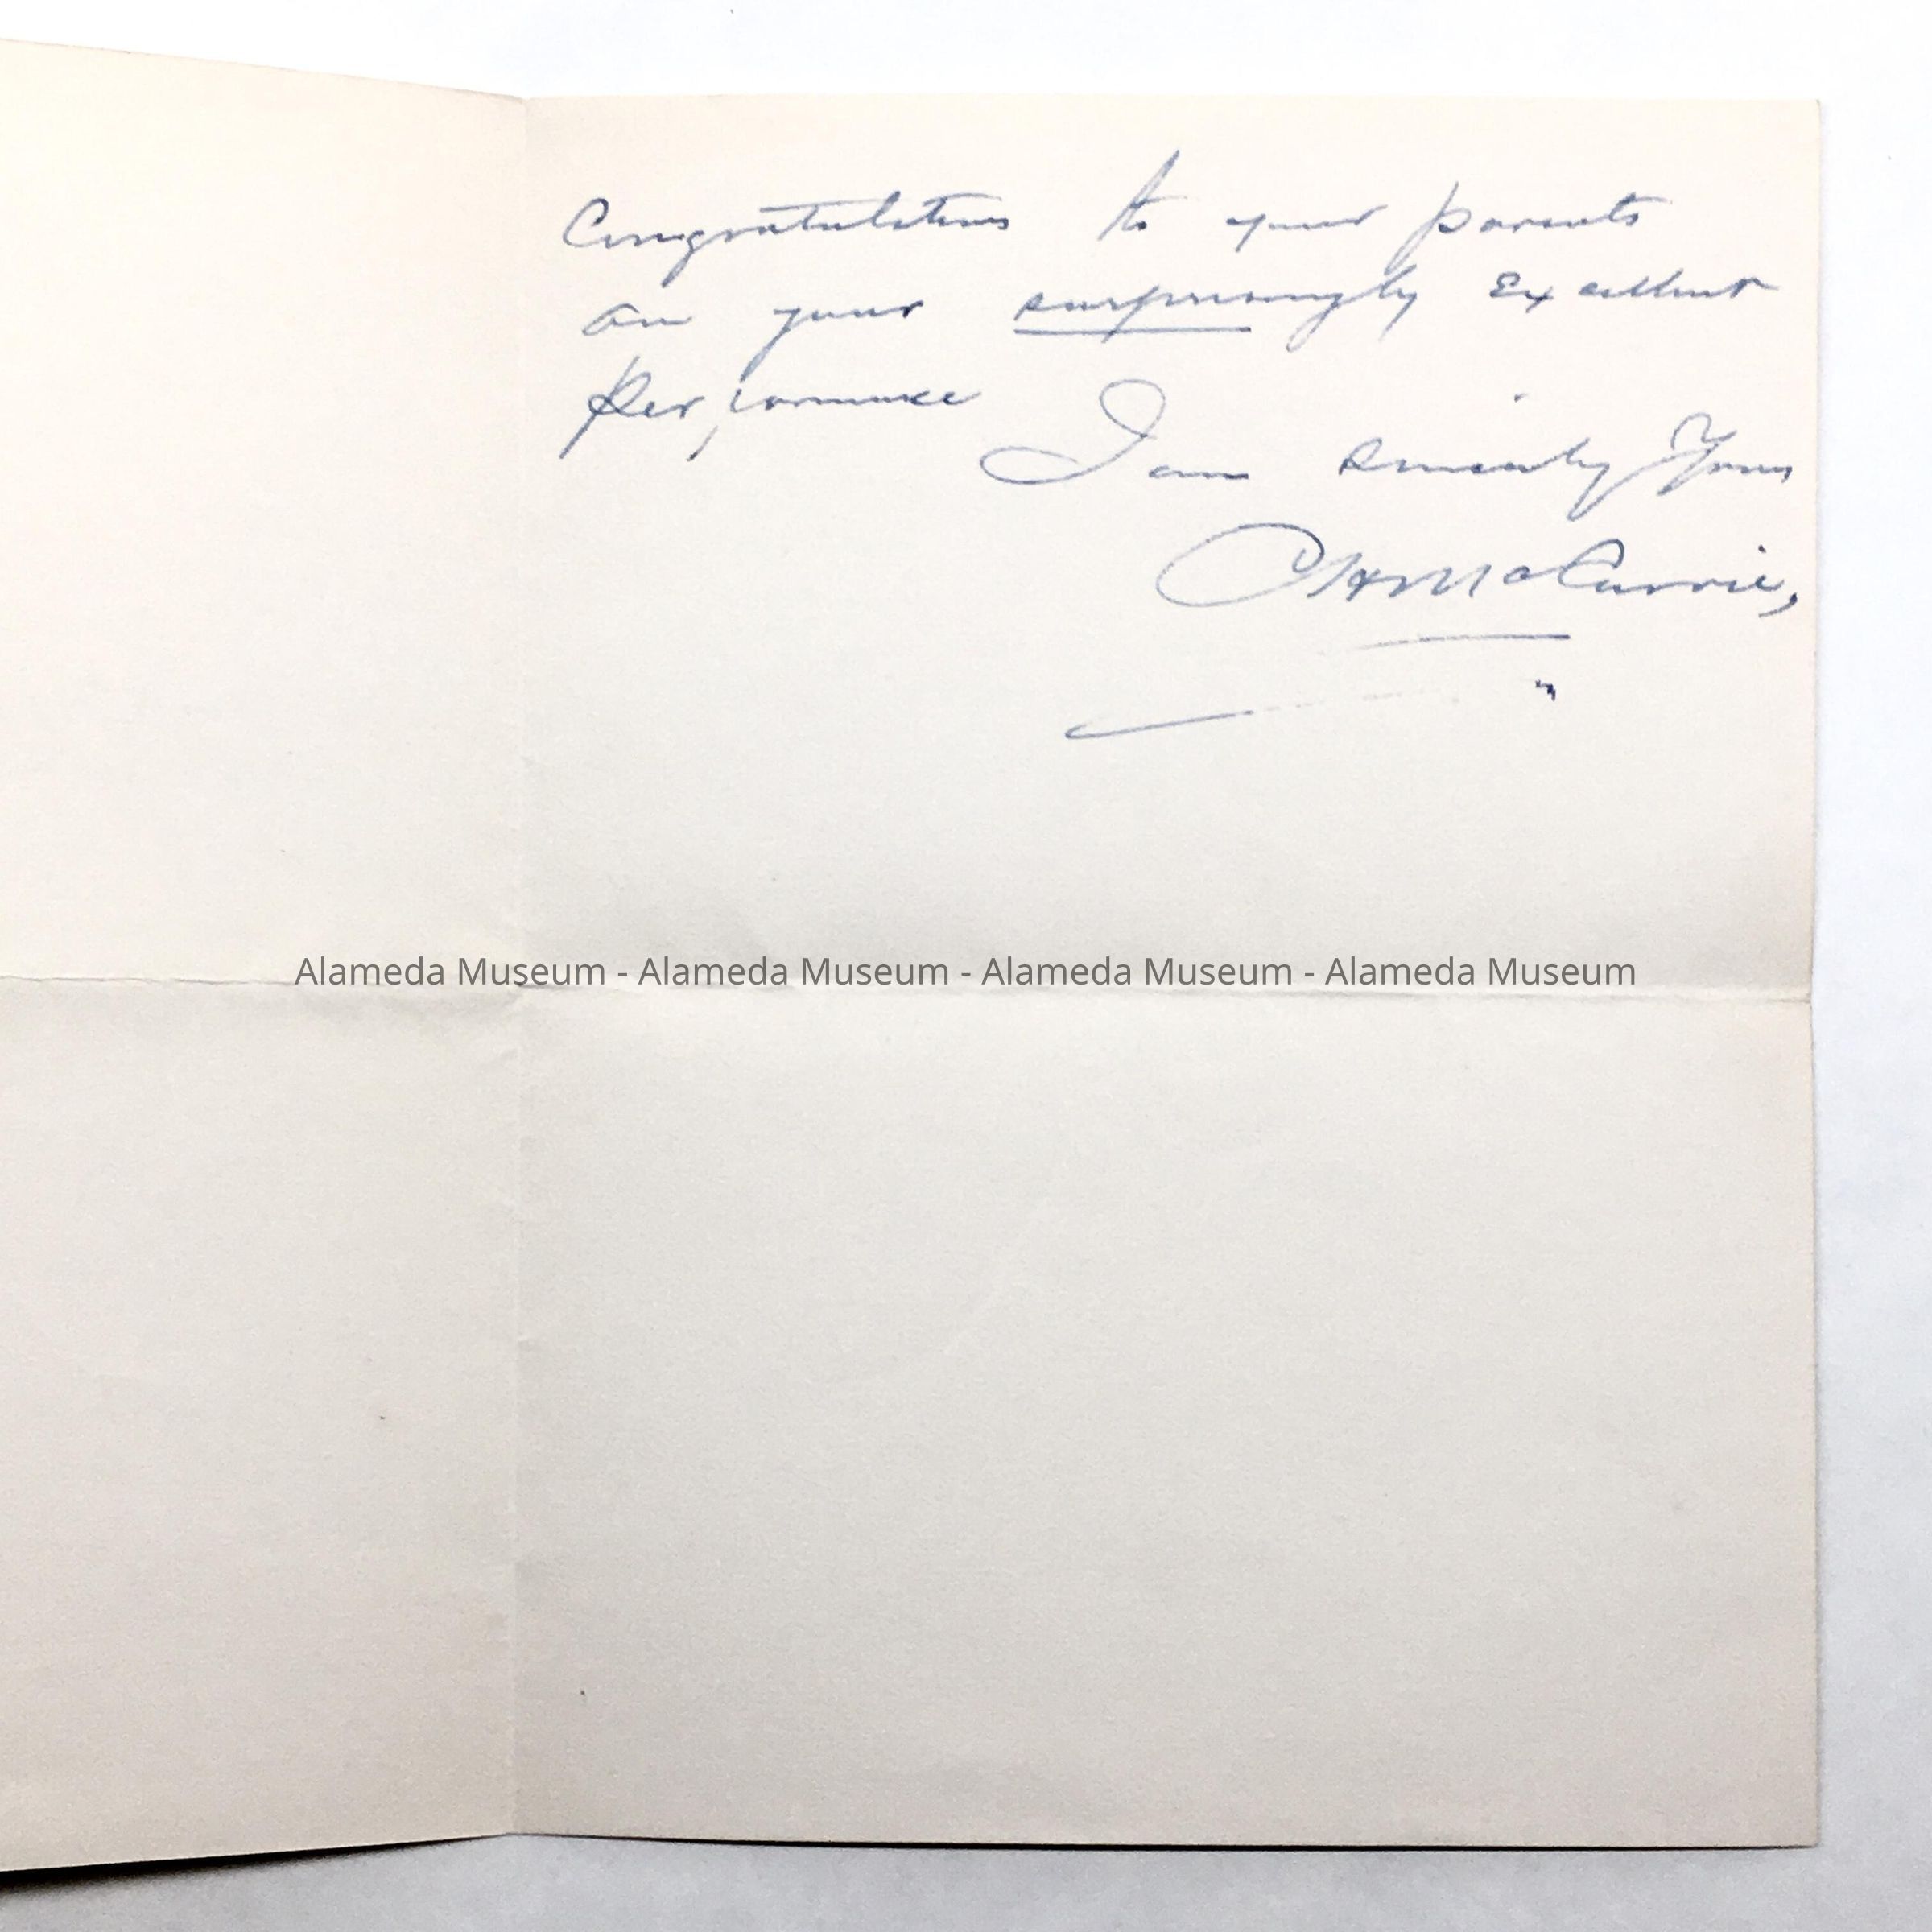 Congratulations to your parents
on your surprisingly Excellent
Performance
I am sincerely Yours
CHMcCurrie,
Alameda Museum - Alameda Museum - Alameda Museum - Alameda Museum